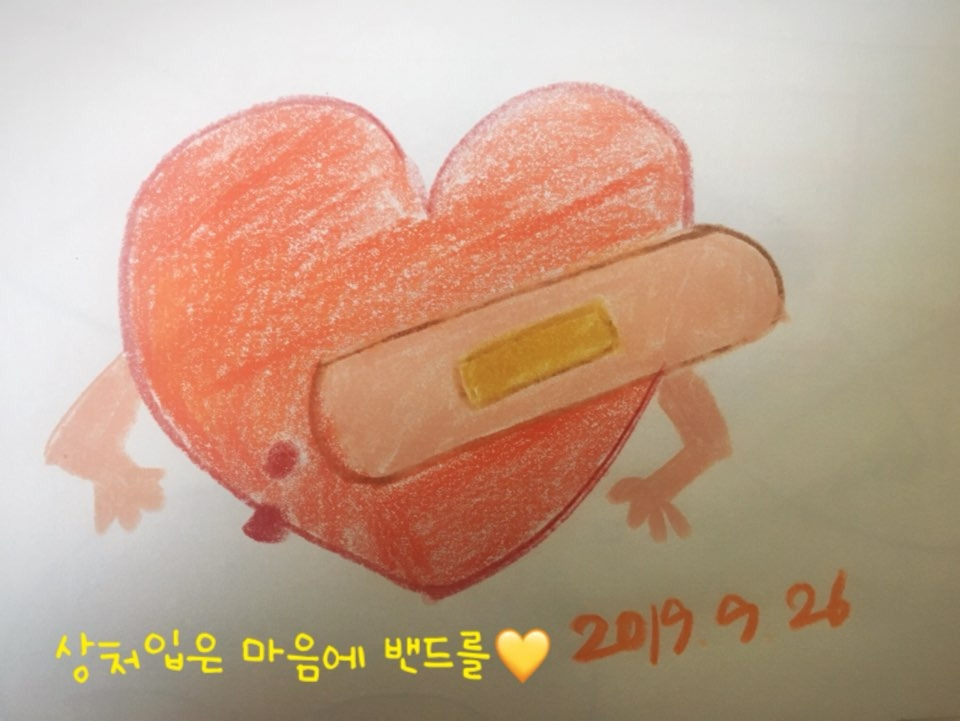 상처입은 마음에 밴드를💛
2019.9.26